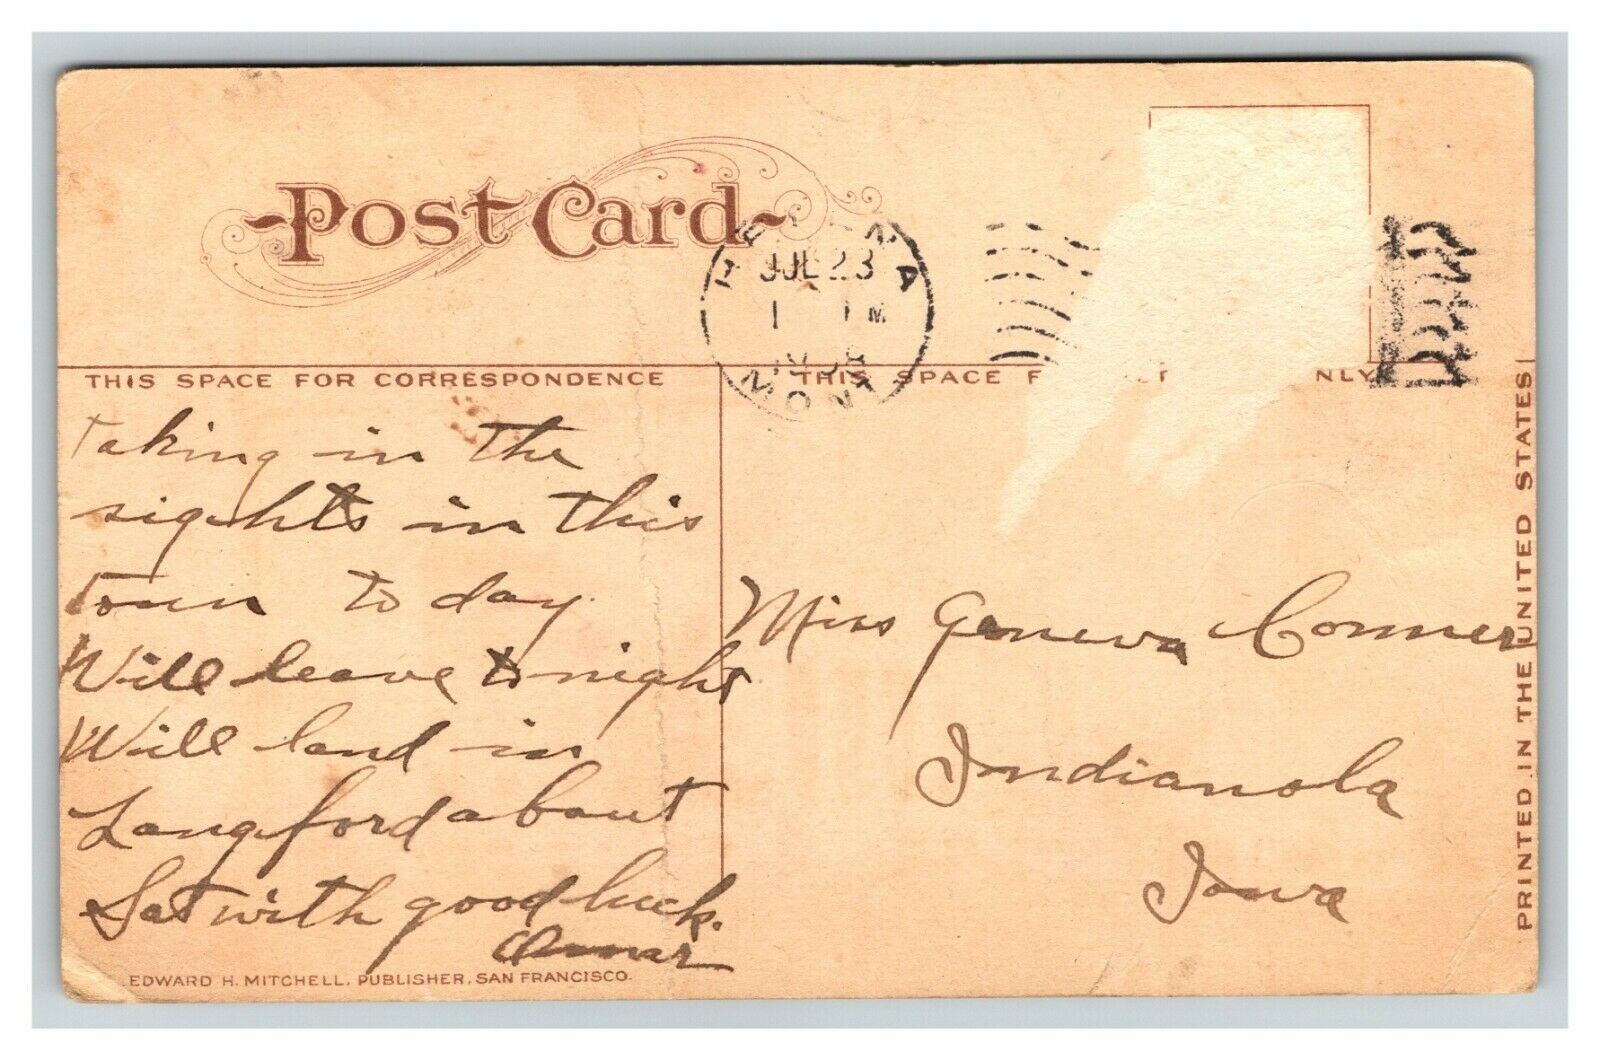 Post Card
HELENA
JUL 23
1 M
MONT.
THIS SPACE FOR CORRESPONDENCE
THIS SPACE F NLY
Taking in the
sights in this
town to day.
Will leave to night
Will land in
Langford about
Sat with good luck.
Omar
Miss Geneva Conner
Indianola
Iowa
EDWARD H. MITCHELL, PUBLISHER, SAN FRANCISCO.
PRINTED IN THE UNITED STATES